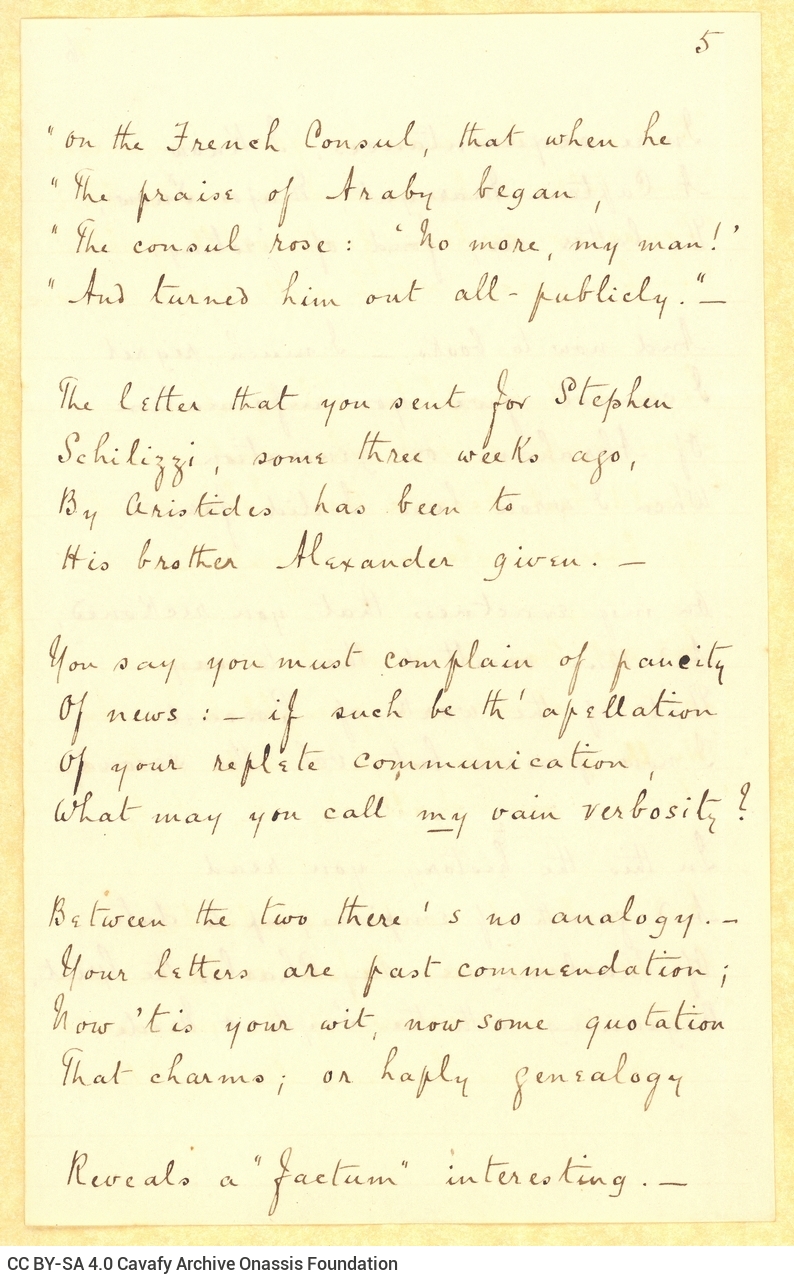 5
"on the French Consul, that when he
"The praise of Araby began,
"The consul rose: 'No more, my man!'
"And turned him out all-publicly."—
The letter that you sent for Stephen
Schilizzi, some three weeks ago,
By Aristides has been to
His brother Alexander given. —
You say you must complain of paucity
Of news: — if such be th' apellation
Of your replete communication,
What may you call my vain verbosity?
Between the two there's no analogy. —
Your letters are past commendation;
Now 'tis your wit, now some quotation
That charms; or haply genealogy
Reveals a "factum" interesting. —
CC BY-SA 4.0 Cavafy Archive Onassis Foundation